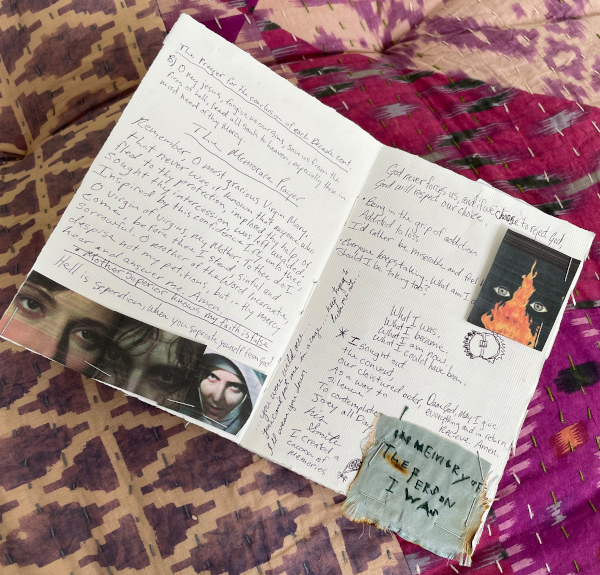 The Prayer for the conclusion of each Decade cont.
B) O my Jesus, forgive us our sins, save us from the
fires of hell, lead all souls to heaven, especially those in
most need of thy Mercy
The Memorare Prayer
Remember, O most gracious Virgin Mary,
that never was it known that anyone who
fled to thy protection, implored thy help, or
sought thy intercession was left unaided.
Inspired by this confidence I fly unto thee,
O Virgin of virgins, my Mother. To thee do I
come, before thee I stand, sinful and
sorrowful. O Mother of the Word Incarnate
despise not my petitions, but in thy Mercy
hear and answer me. Amen.
Mother Superior knows my faith is false
Hell is separation, when you separate yourself from God
God never forces us, and if we choose to reject God,
God will respect our choice.
Being in the grip of addiction
Addicted to loss
I'd rather be miserable and feel
Everyone keeps taking. What am I
Should I be taking too?
What I was,
What I became,
What I am now
What I could have been.
* I sought out
the convent,
our cloistered order,
As a way to
Silence
To contemplate
Joey all Day
Dear God may I give
everything and in return,
Recieve. Amen.
I created a
cocoon of
memories
IN MEMORY OF
THE PERSON
I WAS